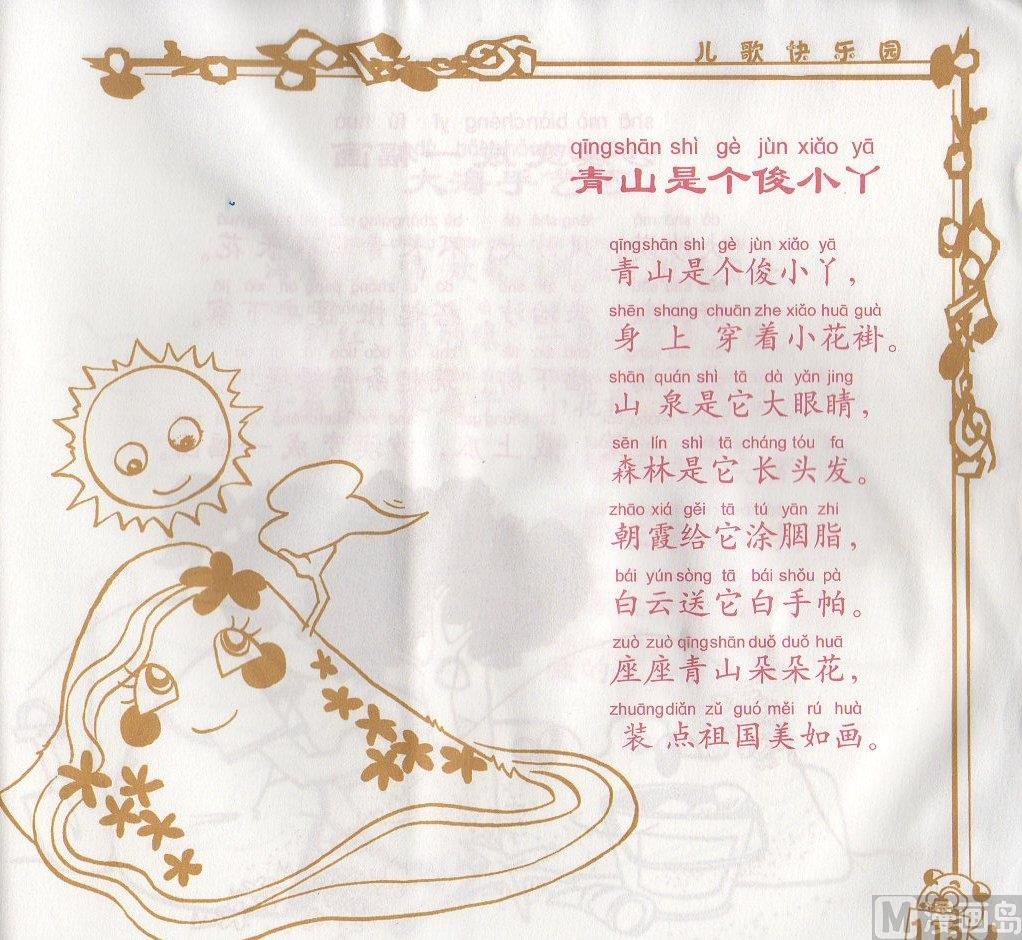 儿歌快乐园
qīngshān shì gè jùn xiǎo yā
青山是个俊小丫
qīngshān shì gè jùn xiǎo yā
青山是个俊小丫，
shēn shang chuān zhe xiǎo huā guà
身上穿着小花褂。
shān quán shì tā dà yǎn jing
山泉是它大眼睛，
sēn lín shì tā cháng tóu fa
森林是它长头发。
zhāo xiá gěi tā tú yān zhi
朝霞给它涂胭脂，
bái yún sòng tā bái shǒu pà
白云送它白手帕。
zuò zuò qīngshān duǒ duǒ huā
座座青山朵朵花，
zhuāngdiǎn zǔ guó měi rú huà
装点祖国美如画。
漫画岛